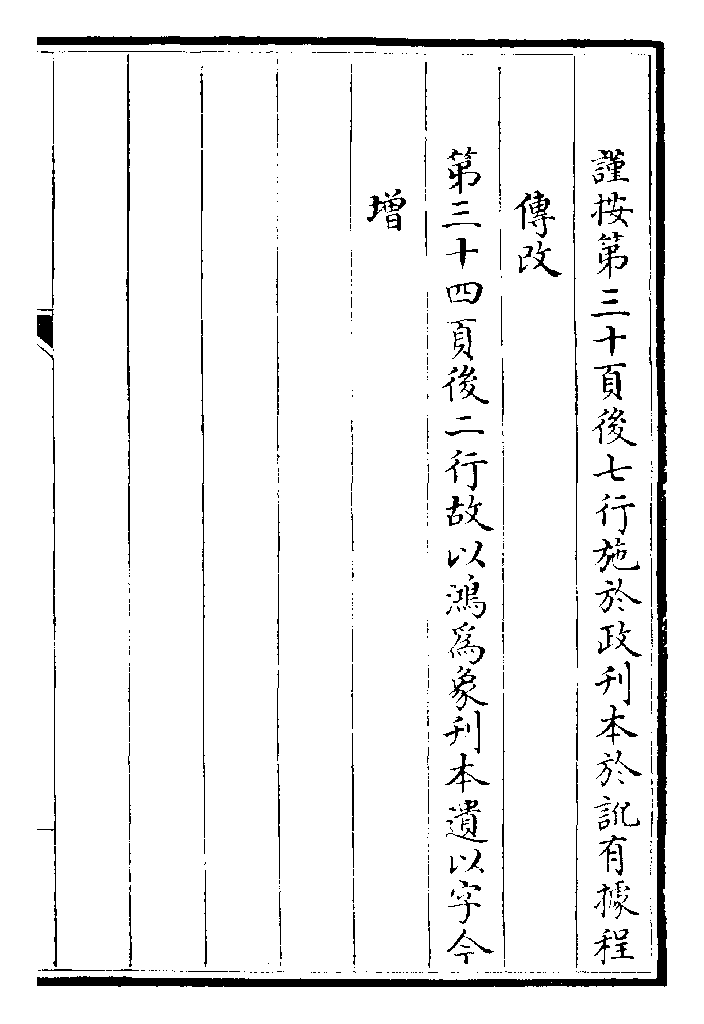 謹按第三十頁後七行施於政刋本於訛有據程
傳改
第三十四頁後二行故以鴻爲象刋本遺以字今
增